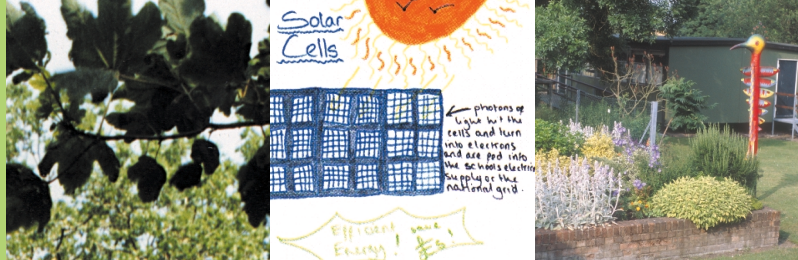 Solar
Cells
photons of
light hit the
cells and turn
into electrons
and are fed into
the schools electric
supply or the
national grid.
Efficent save
Energy! £s!